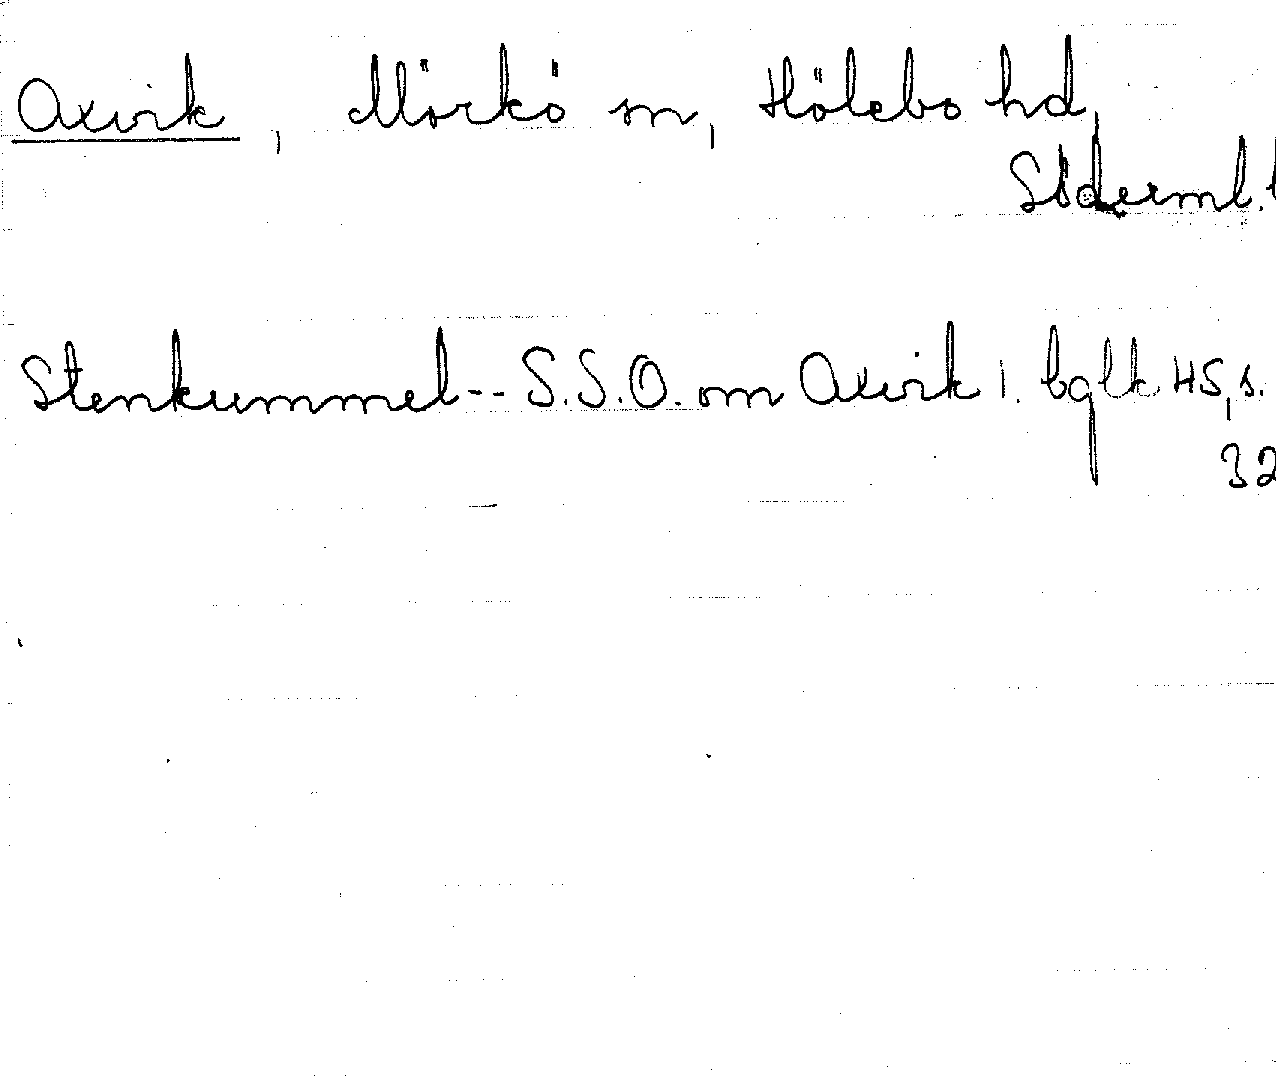 Axvik, Mörkö sn, Hölebo hd,
Söderml.
Stenkummel-- S.S.O. om Axvik 1. bglk HS, s.
32